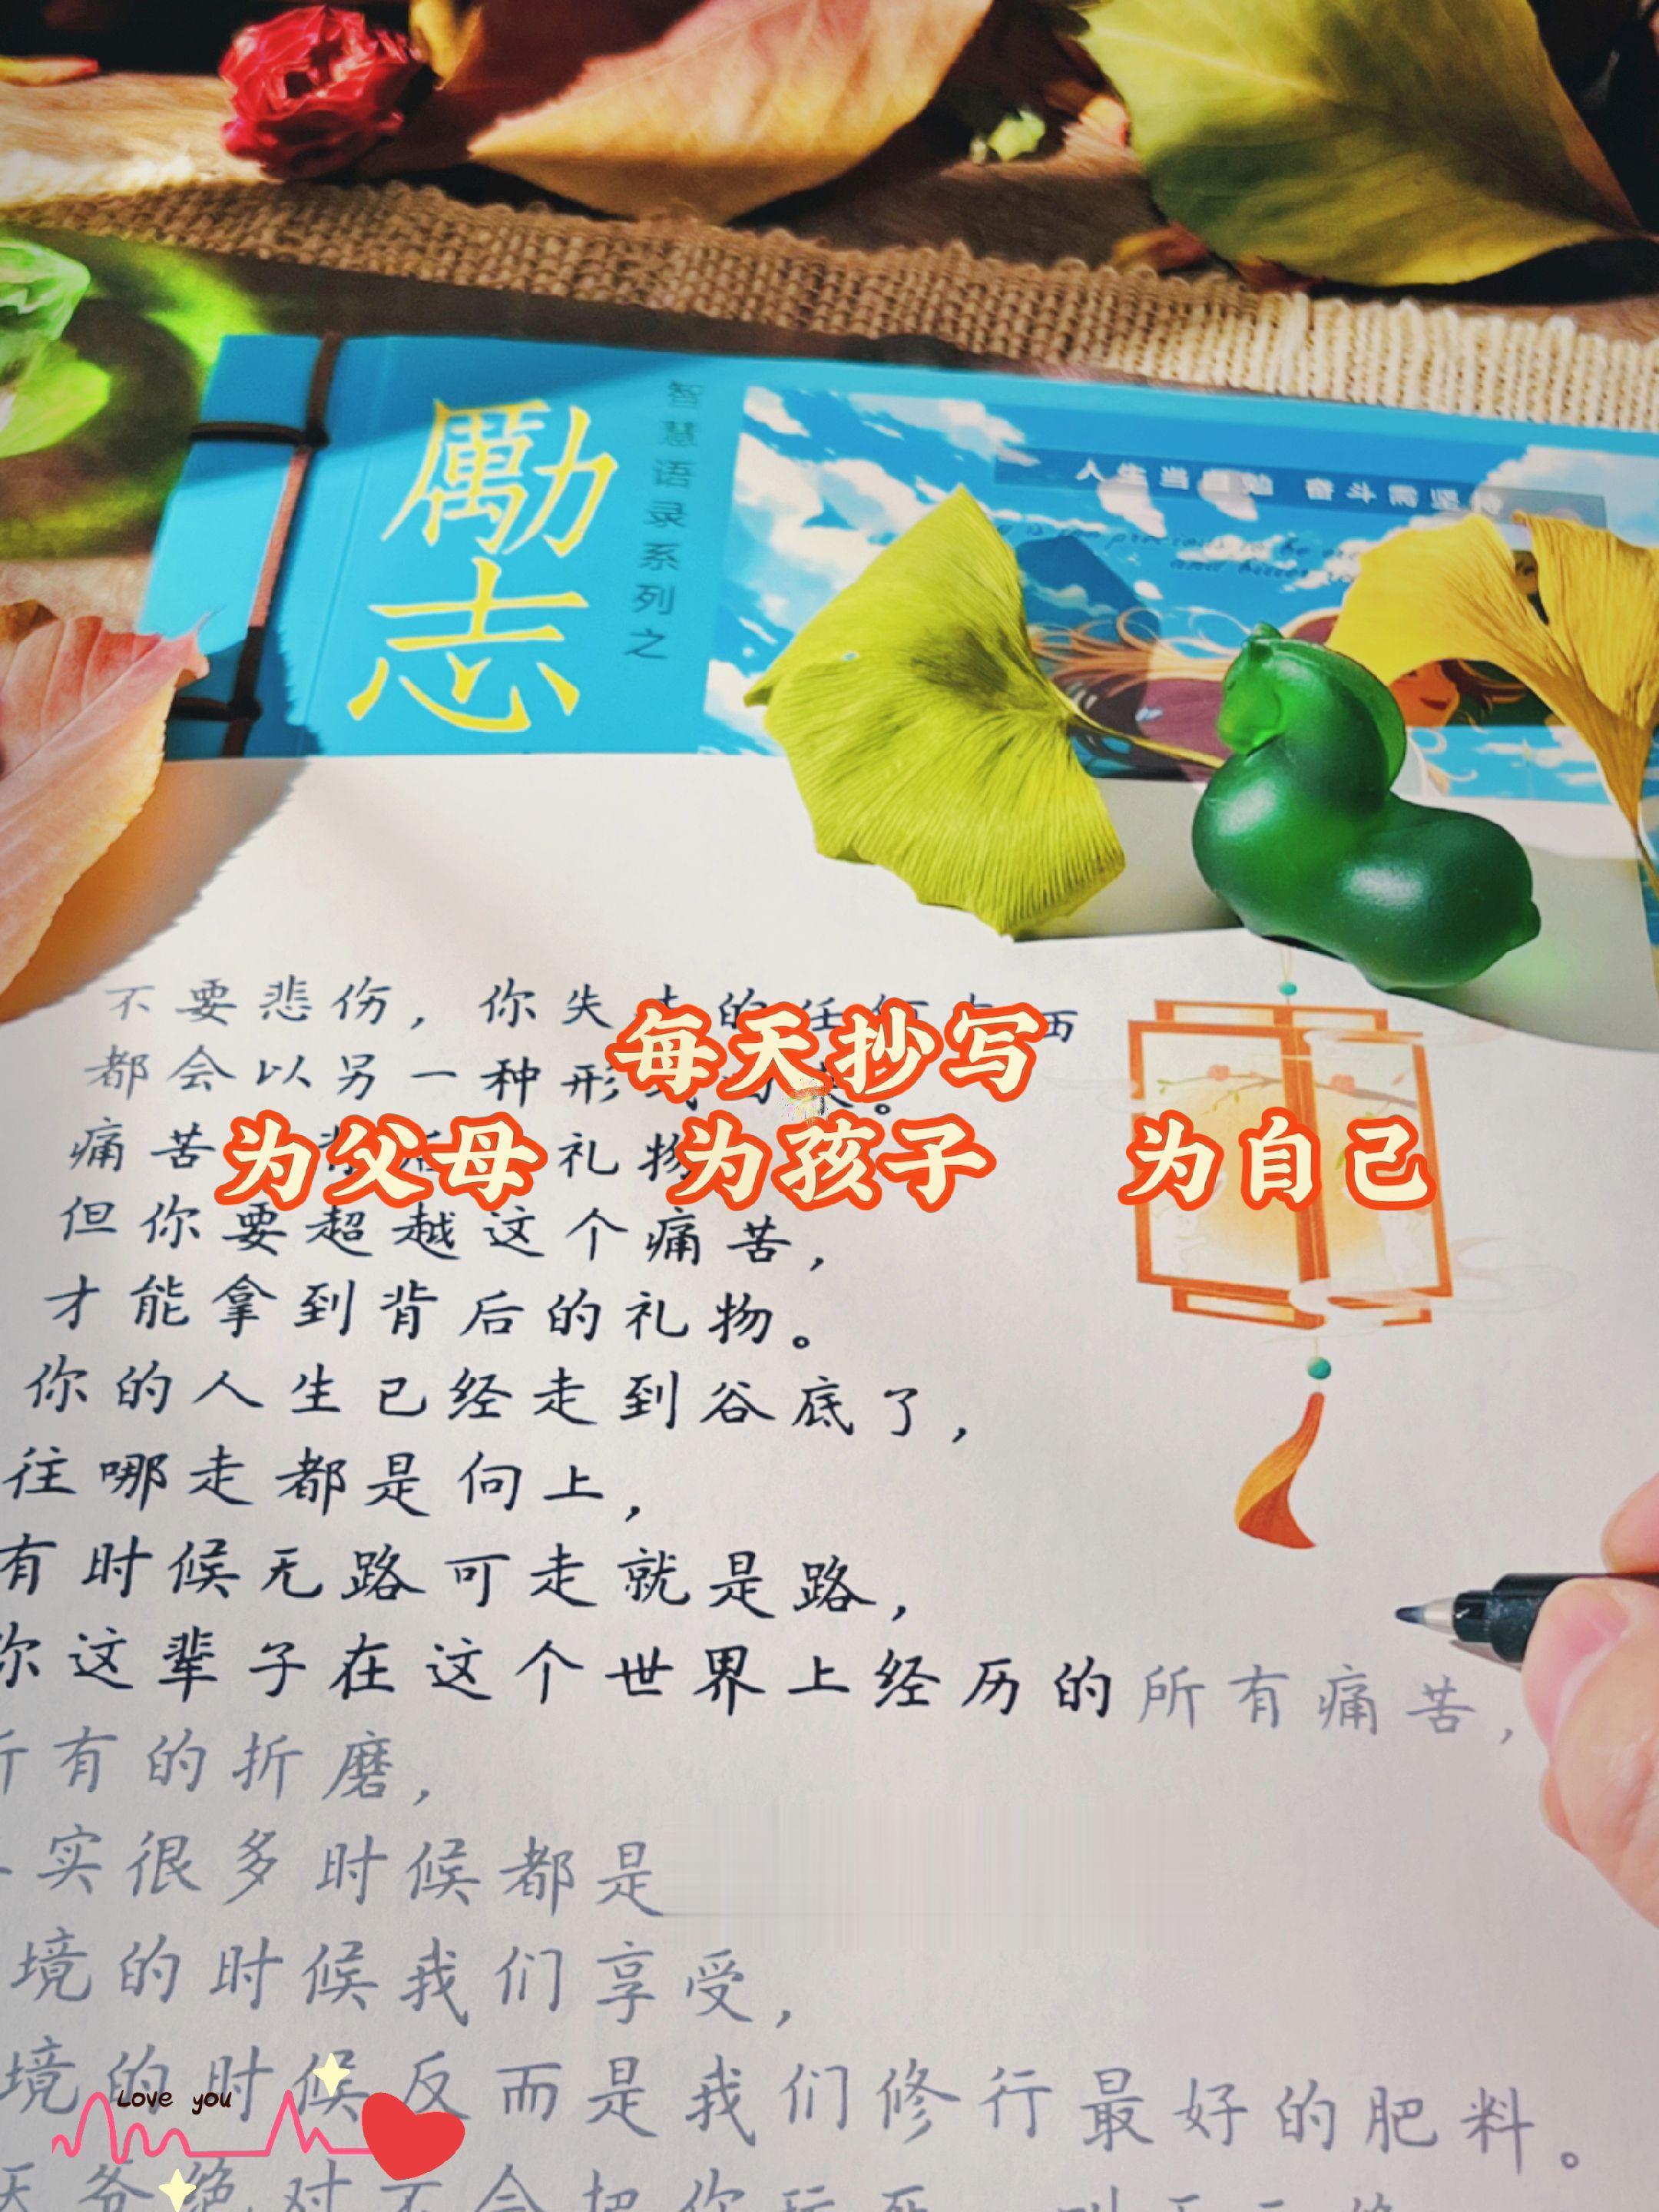 励志
智慧语录系列之
人生当自勉 奋斗需坚持
不要悲伤，你失去的任何东西
每天抄写
都会以另一种形式归来。
痛苦 背后 礼物
为父母 为孩子 为自己
但你要超越这个痛苦，
才能拿到背后的礼物。
你的人生已经走到谷底了，
往哪走都是向上，
有时候无路可走就是路，
你这辈子在这个世界上经历的所有痛苦，
所有的折磨，
实很多时候都是
境的时候我们享受，
境的时候反而是我们修行最好的肥料。
Love you